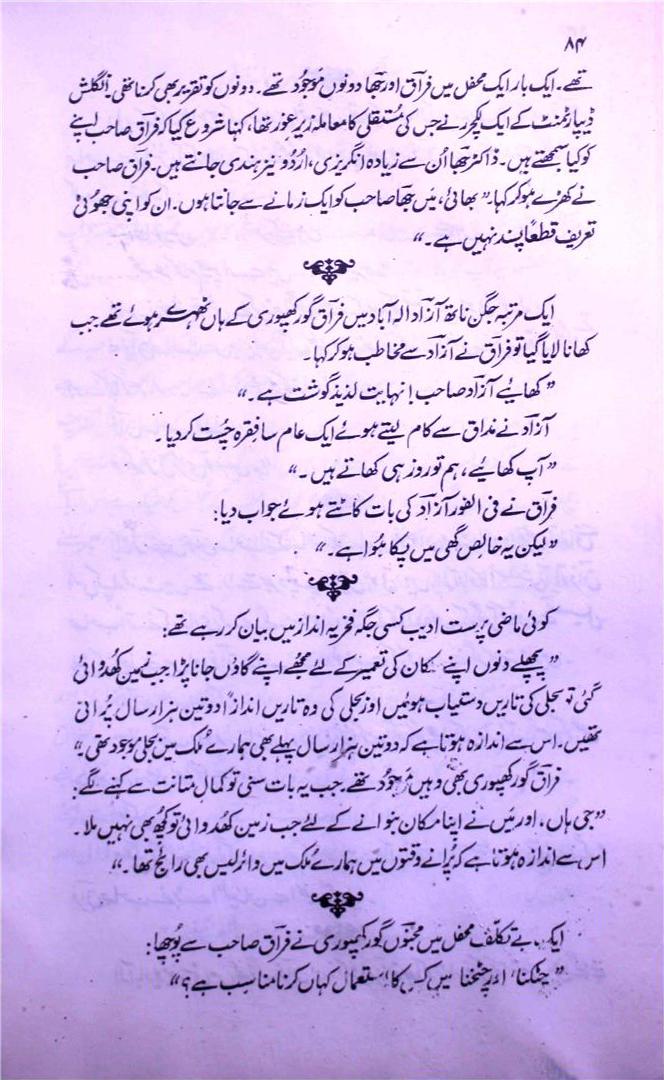 ۸۴
تھے۔ ایک بار ایک محفل میں فراق اور جھا دونوں موجود تھے۔ دونوں کو تقریر بھی کرنا تھی۔ انگلش
ڈیپارٹمنٹ کے ایک لیکچرر نے جس کی مستقلی کا معاملہ زیرِ غور تھا، کہنا شروع کیا کہ فراق صاحب اپنے
کو کیا سمجھتے ہیں۔ ڈاکٹر جھا اُن سے زیادہ انگریزی، اُردو نیز ہندی جانتے ہیں۔ فراق صاحب
نے کھڑے ہو کر کہا۔ ”بھائی، میں جھا صاحب کو ایک زمانے سے جانتا ہوں۔ ان کو اپنی جھوٹی
تعریف قطعاً پسند نہیں ہے۔“
ایک مرتبہ جگن ناتھ آزاد الہ آباد میں فراق گورکھپوری کے ہاں ٹھہرے ہوئے تھے جب
کھانا لایا گیا تو فراق نے آزاد سے مخاطب ہو کر کہا۔
”کھائیے آزاد صاحب! نہایت لذیذ گوشت ہے۔“
آزاد نے مذاق سے کام لیتے ہوئے ایک عام سا فقرہ چُست کر دیا۔
”آپ کھائیے، ہم تو روز ہی کھاتے ہیں۔“
فراق نے فی الفور آزاد کی بات کاٹتے ہوئے جواب دیا:
”لیکن یہ خالص گھی میں پکا ہوا ہے۔“
کوئی ماضی پرست ادیب کسی جگہ فخریہ انداز میں بیان کر رہے تھے:
”پچھلے دنوں اپنے مکان کی تعمیر کے لئے مجھے اپنے گاؤں جانا پڑا جب زمین کھدوائی
گئی تو بجلی کی تاریں دستیاب ہوئیں اور بجلی کی وہ تاریں اندازاً دو تین ہزار سال پُرانی
تھیں۔ اس سے اندازہ ہوتا ہے کہ دو تین ہزار سال پہلے بھی ہمارے مُلک میں بجلی موجود تھی۔“
فراق گورکھپوری بھی وہیں موجود تھے۔ جب یہ بات سنی تو کمالِ متانت سے کہنے لگے:
”جی ہاں، اور میں نے اپنا مکان بنوانے کے لئے جب زمین کھدوائی تو کچھ بھی نہیں ملا۔
اس سے اندازہ ہوتا ہے کہ پُرانے وقتوں میں ہمارے مُلک میں وائرلیس بھی رائج تھا۔“
ایک بے تکلف محفل میں مجنوں گورکھپوری نے فراق صاحب سے پُوچھا:
”چٹکنا، اور چٹخنا میں کس کا استعمال کہاں کرنا مناسب ہے؟“